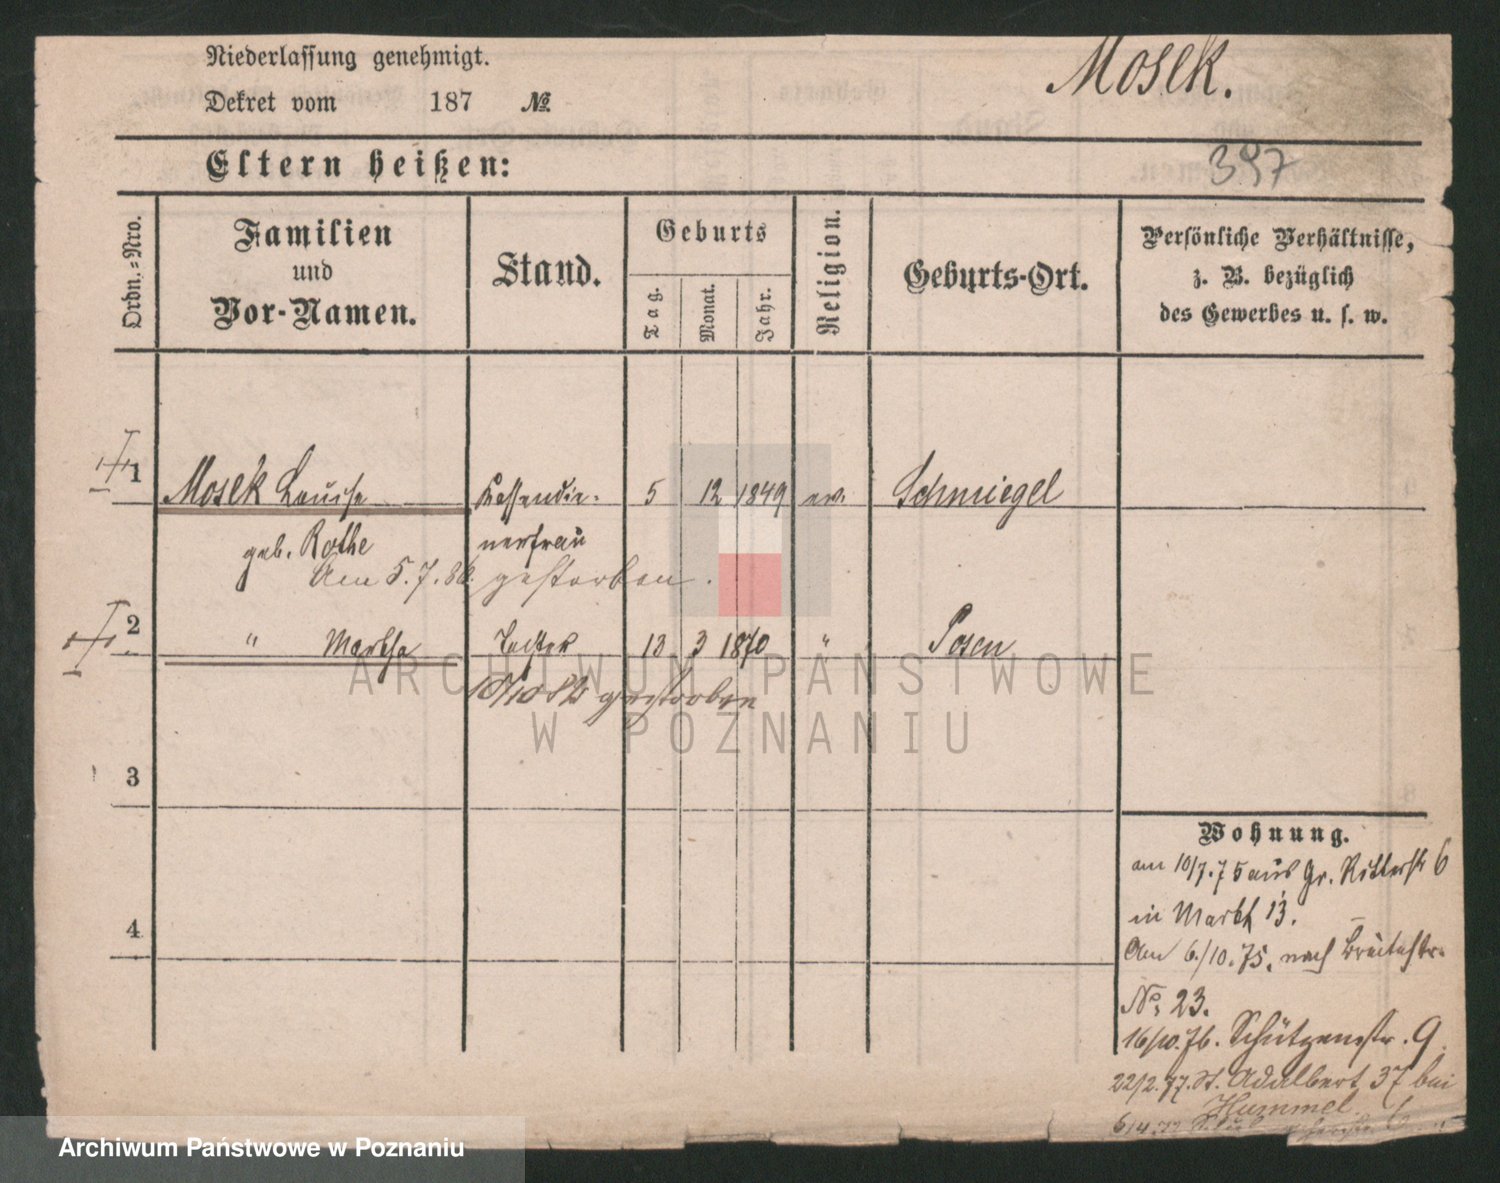 Niederlassung genehmigt.
Mosek.
Dekret vom 187 №
Eltern heißen:
397
Ordn.-Nro.
Familien
und
Vor-Namen.
Stand.
Geburts
Tag.
Monat.
Jahr.
Religion.
Geburts-Ort.
Persönliche Verhältnisse,
z. B. bezüglich
des Gewerbes u. s. w.
1 Mosek Louise Kassendie- 5 12 1849 ev. Schmiegel
geb. Rothe nerfrau
Am 5.7.86. gestorben.
2 " Martha Tochter 13 3 1870 " Posen
10/10 82 gestorben
ARCHIWUM PAŃSTWOWE
W POZNANIU
3
4
Wohnung.
am 10/7.75 aus Gr. Ritterstr 6
in Markt 13.
Am 6./10.75. nach Breitestr.
No: 23.
16/10.76. Schützenstr. 9.
22/2.77. St. Adalbert 37 bei
Hummel.
6/4.77
Archiwum Państwowe w Poznaniu